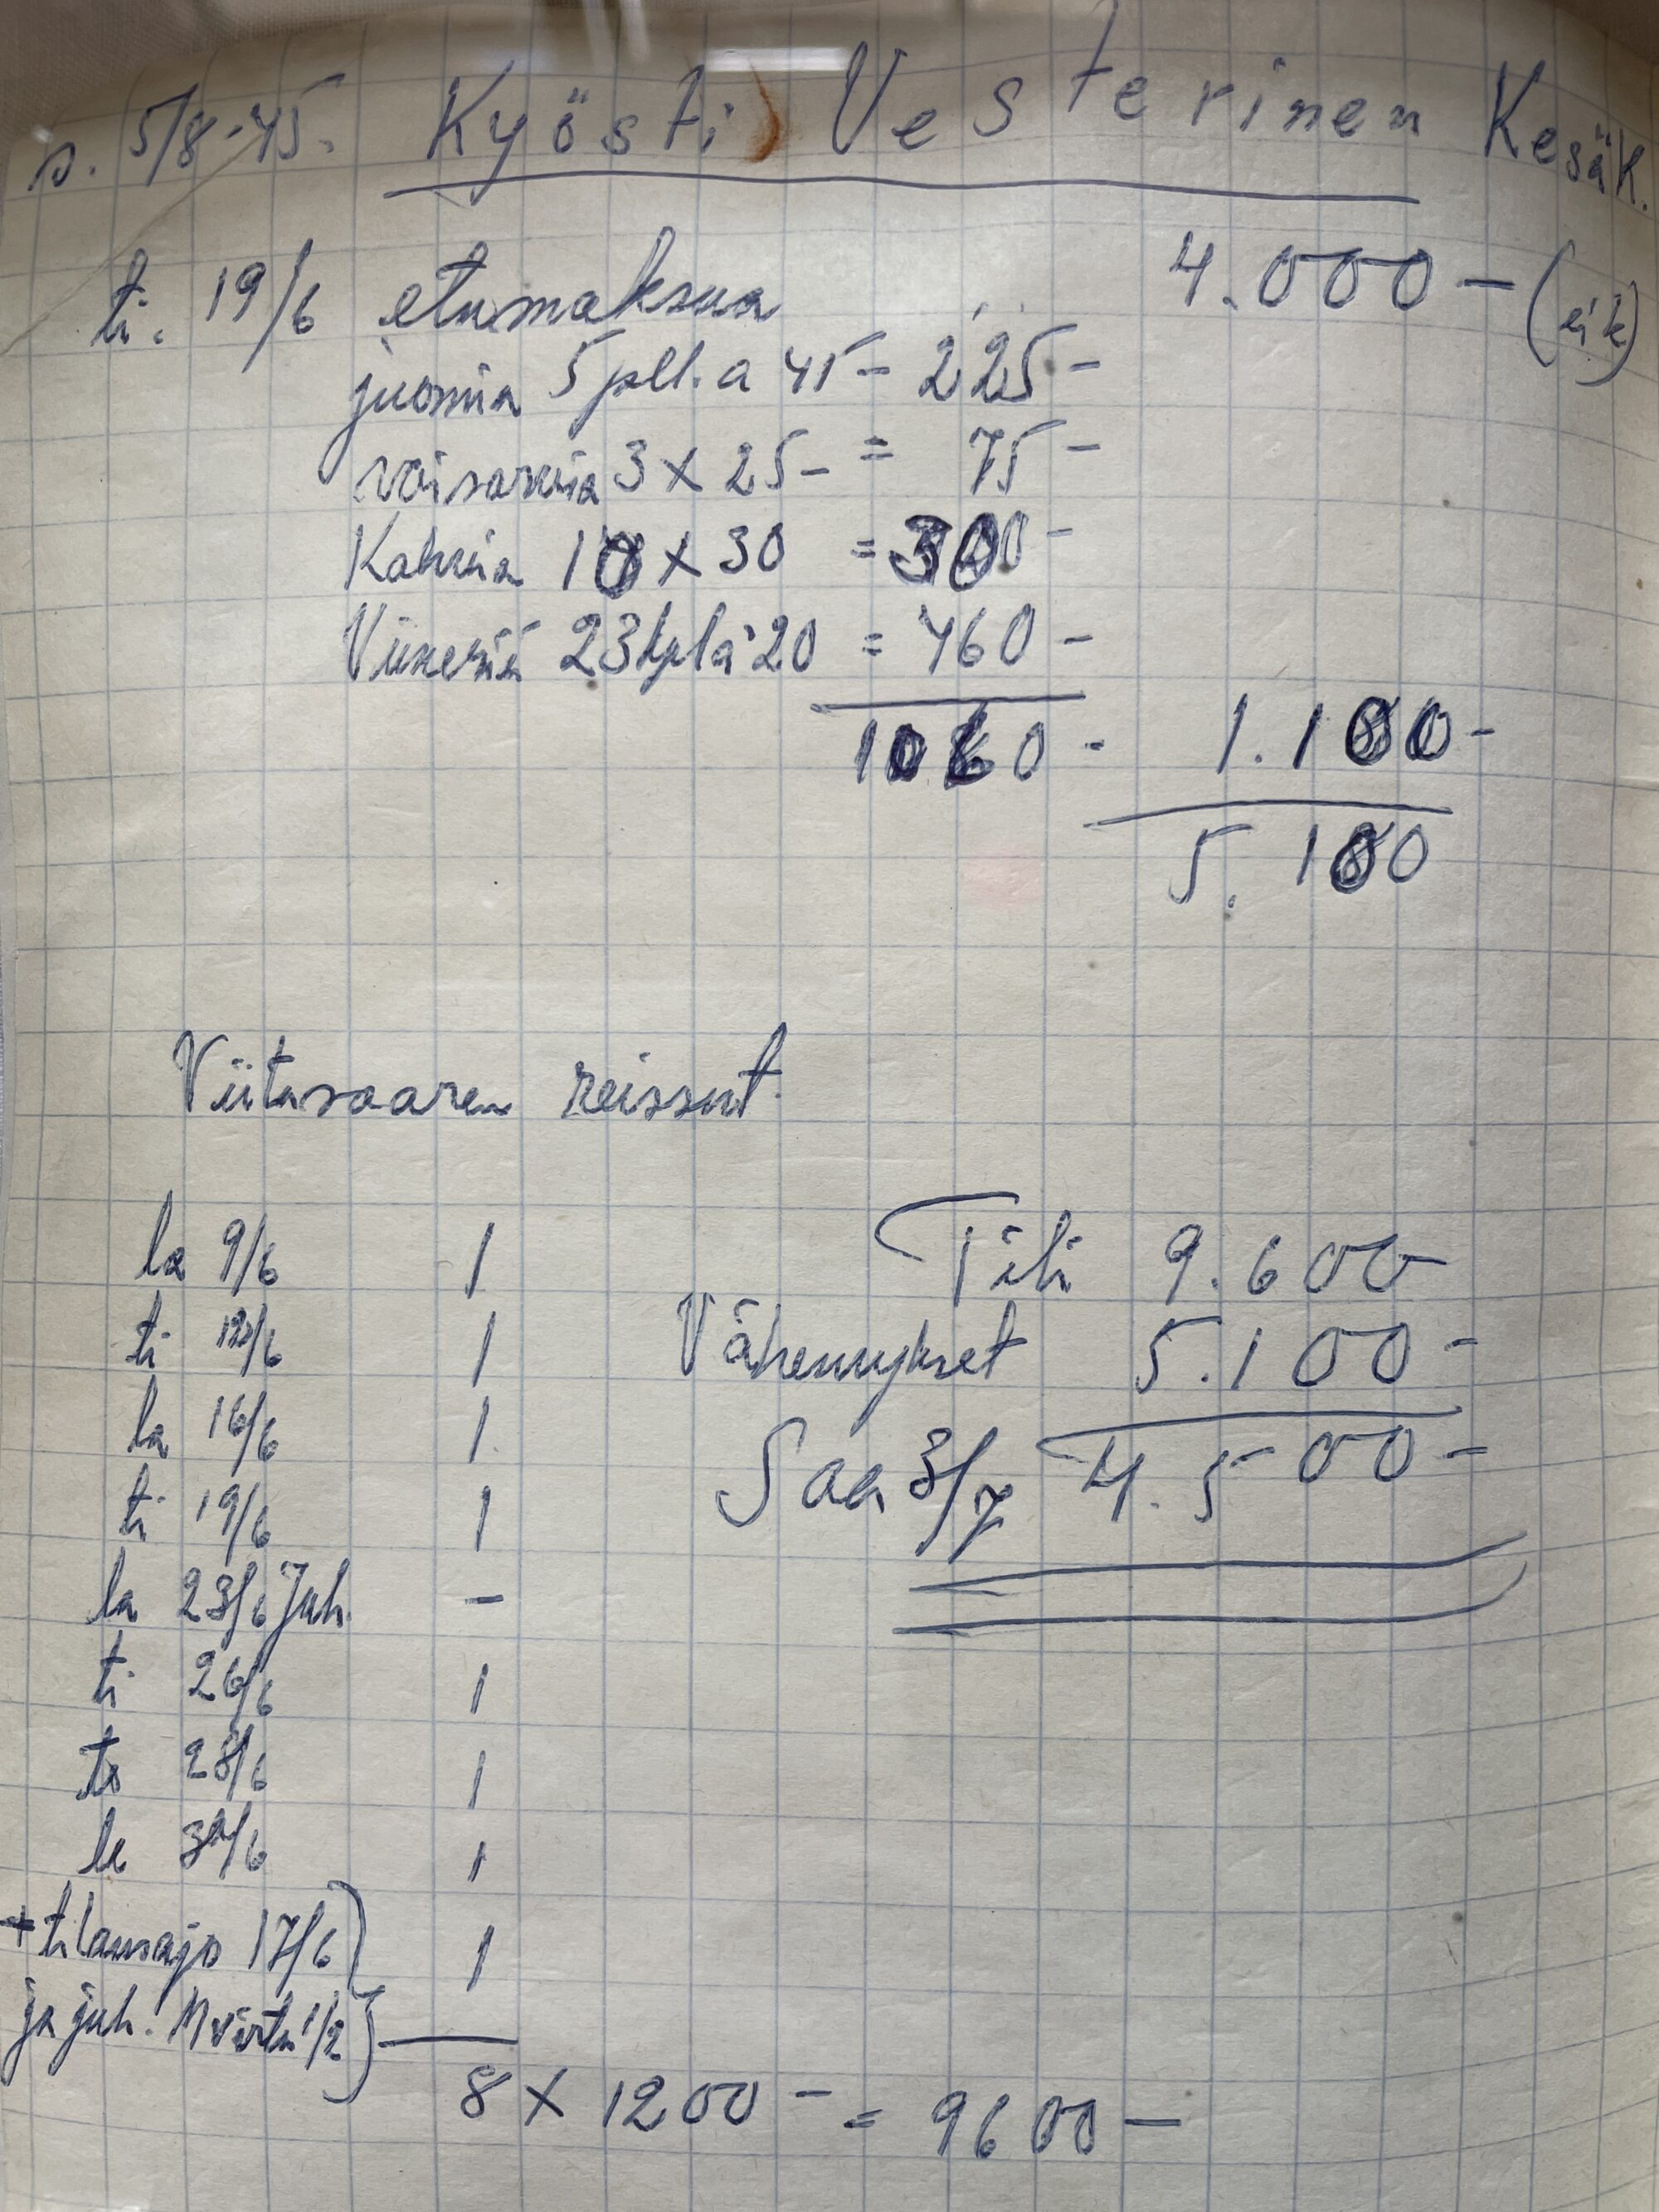 s. 5/8-45. Kyösti Vesterinen Kesäk.
ti. 19/6 etumaksua 4.000 –
juomia 5 pll. a 45 – 225 –
voisarvia 3 x 25 – = 75 –
Kahvia 10 x 30 = 300 –
Viineriä 23 kpl á 20 = 460 –
1060 – 1.100 –
5.100
Viitasaaren reissut.
la 9/6 1
Tili 9.600
ti 12/6 1
Vähennykset 5.100 –
la 16/6 1
Saa 3/7 4.500 –
ti 19/6 1
la 23/6 Juh. –
ti 26/6 1
to 28/6 1
la 30/6 1
+ tilausajo 17/6 1
ja juh. 1/2
8 x 1200 – = 9600 –